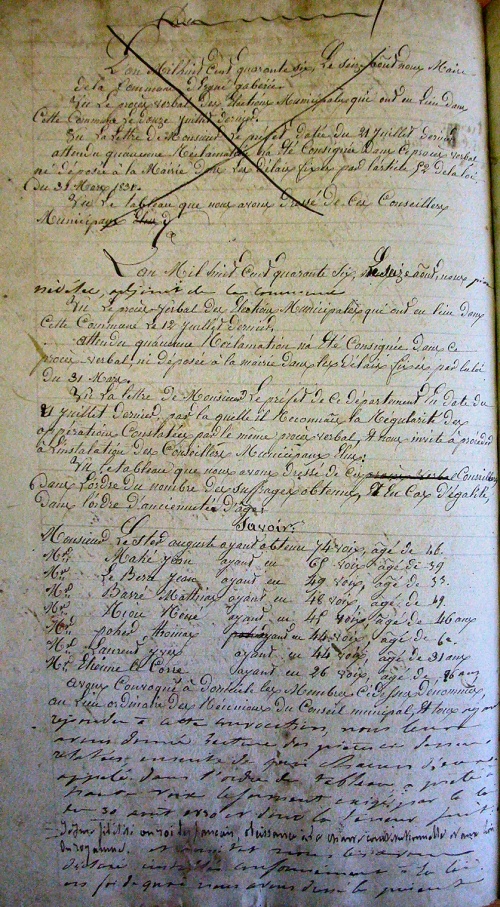 L'an Mil huit Cent quarante six, Le seize août nous Maire
de la Commune d'Ergué gabéric
Vu Le procès verbal des élections Municipales qui ont eu lieu dans
Cette Commune Le douze Juillet dernier.
Vu La Lettre de Monsieur Le préfet datée du 21 Juillet dernier
attendu qu'aucune Réclamation n'a été Consignée dans Ce procès verbal
ni déposée à la Mairie dans Les délais fixés par l'article 52 de la loi
du 31 Mars 1831.
Vu Le tableau que nous avons dressé de Ces Conseillers
Municipaux
L'an Mil huit Cent quarante Six, Le seize août, nous
adjoint de la commune
Vu Le procès-verbal des élections Municipales qui ont eu lieu dans
Cette Commune Le 12 Juillet dernier.
attendu qu'aucune Réclamation n'a été Consignée dans ce
procès verbal, ni déposée à la mairie dans les délais fixés par la loi
du 31 Mars.
Vu La lettre de Monsieur Le préfet de Ce département en date du
21 Juillet dernier, par la quelle il Reconnaît la Régularité des
opérations Constatées par le même procès verbal, et nous invite à procéder
à L'installation des Conseillers Municipaux élus:
Vu Le tableau que nous avons dressé de Ces procès verbal Conseillers
dans L'ordre du nombre des suffrages obtenus, et En Cas d'égalité,
dans l'ordre d'ancienneté d'âge:
Savoir
Monsieur Le Ster auguste ayant obtenu 74 voix, âgé de 46.
Mr. Mahé Jean ayant eu 65 voix, âgé de 39
Mr. Le Berre Jean, ayant eu 49 voix, âgé de 33.
Mr. Barré Mathias ayant eu 48 voix, âgé de 49.
Mr. René ayant eu 45 voix, âgé de 46 ans
Mr. poher thomas ayant eu 44 voix, âgé de 60
Mr. Laurent Yves ayant eu 44 voix, âgé de 31 ans
Mr. Etienne Le Corre ayant eu 26 voix, âgé de 36 ans
avons Convoqué à domicile les Membres Ci dessus dénommés,
au Lieu ordinaire des Réunions du Conseil municipal, et tous
répondu à cette convocation, nous leur
avons donné lecture des pièces ci dessus
relatées, ensuite de quoi chacun d'eux
appelé dans l'ordre du tableau, a prêté à
haute voix le serment exigé par la loi
du 30 août 1830 et dont la teneur suit
Je jure fidélité au roi des français, obéissance à la charte constitutionnelle et aux lois
du royaume. et nous les avons
déclaré installés conformément à la loi
en foi de quoi nous avons dressé le présent